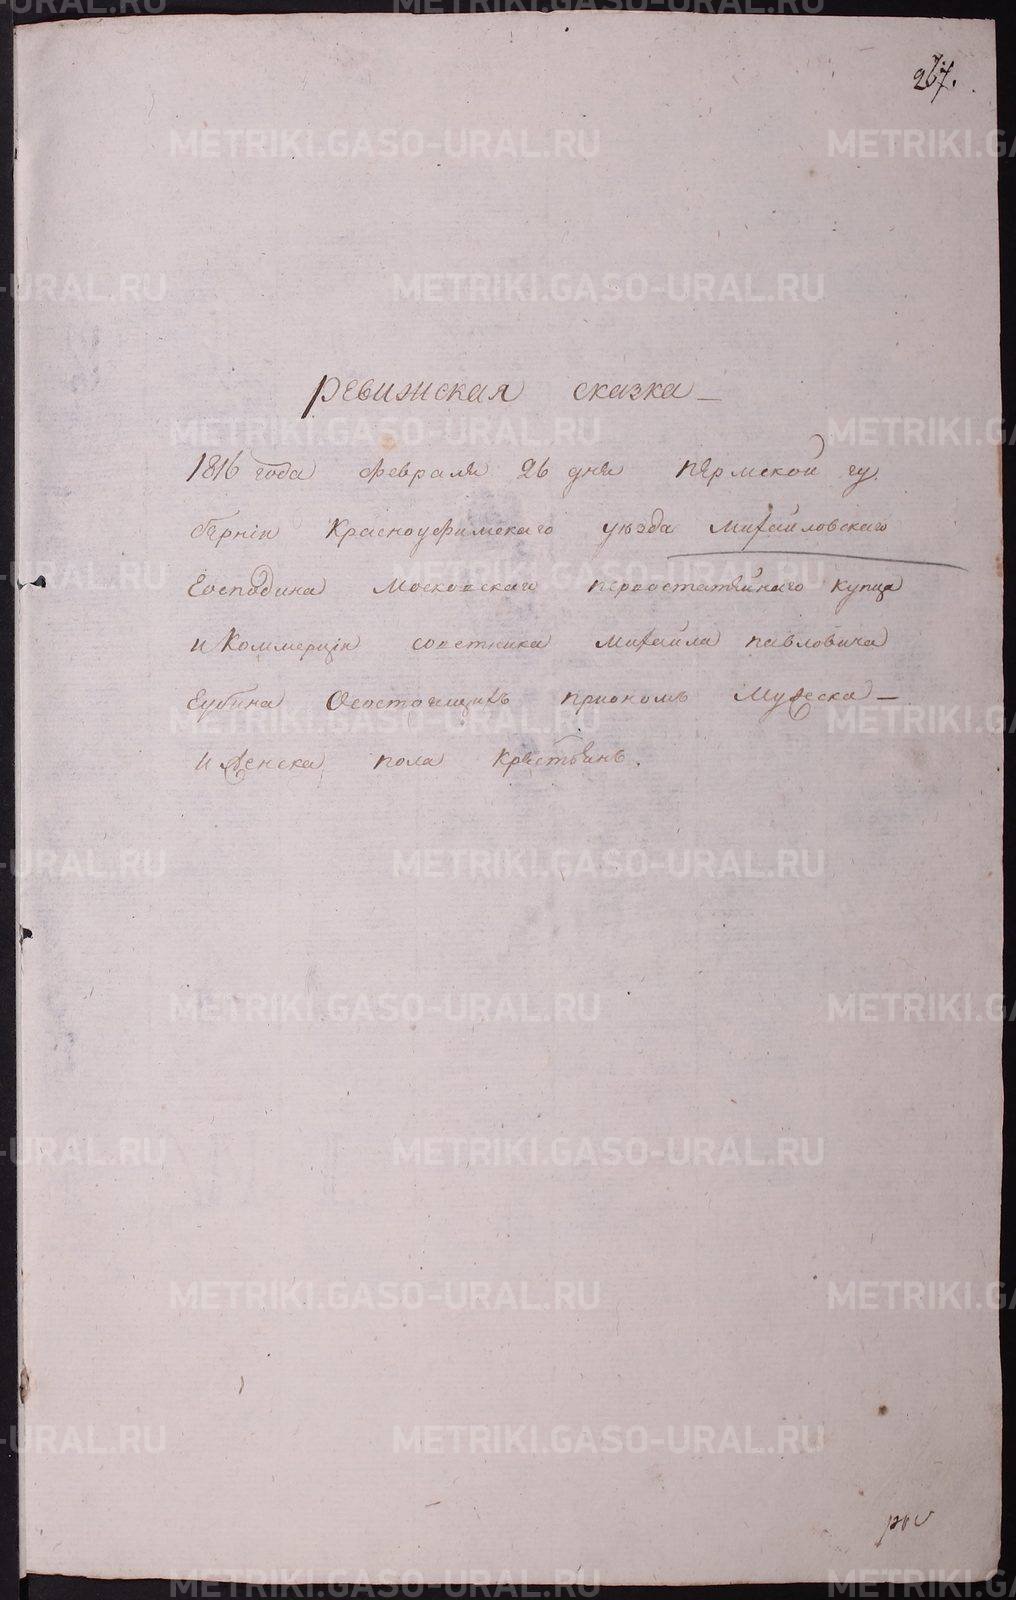 267.
Ревижская сказка —
1816 года февраля 26 дня Пермской гу
бернiи Красноуфимскаго уезда Михайловскаго
Господина Московскаго первостатейнаго купца
и Коммерцiи советника Михайла Павловича
Губина Осостоящихъ приономъ Мужеска —
и женска пола Крестьянъ.
METRIKI.GASO-URAL.RU